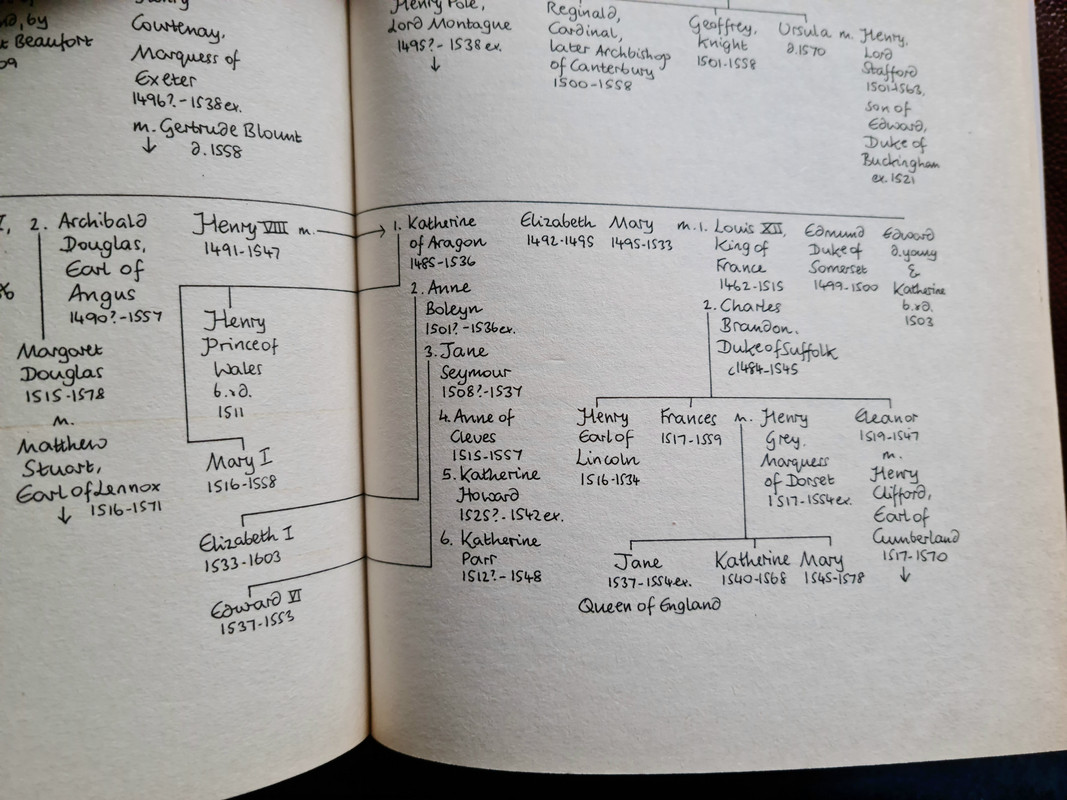 Courtenay,
Marquess of
Exeter
1496?-1538 ex.
m. Gertrude Blount
d. 1558
Beaufort
Henry Pole,
Lord Montague
1495?-1538 ex.
Reginald,
Cardinal,
later Archbishop
of Canterbury
1500-1558
Geoffrey,
Knight
1501-1558
Ursula m. Henry,
d.1570
Lord
Stafford
1501-1563,
son of
Edward,
Duke of
Buckingham
ex. 1521
2. Archibald
Douglas,
Earl of
Angus
1490?-1557
Margaret
Douglas
1515-1578
m.
Matthew
Stuart,
Earl of Lennox
1516-1571
Henry VIII m.
1491-1547
Henry
Prince of
Wales
b.&d.
1511
Mary I
1516-1558
Elizabeth I
1533-1603
Edward VI
1537-1553
1. Katherine
of Aragon
1485-1536
2. Anne
Boleyn
1501?-1536 ex.
3. Jane
Seymour
1508?-1537
4. Anne of
Cleves
1515-1557
5. Katherine
Howard
1525?-1542 ex.
6. Katherine
Parr
1512?-1548
Elizabeth
1492-1495
Mary
1495-1533
m.1. Louis XII,
King of
France
1462-1515
2. Charles
Brandon.
Duke of Suffolk
c1484-1545
Edmund
Duke of
Somerset
1499-1500
Edward
d.young
&
Katherine
b.&d.
1503
Henry
Earl of
Lincoln
1516-1534
Frances
1517-1559
m. Henry
Grey.
Marquess
of Dorset
1517-1554 ex.
Eleanor
1519-1547
m.
Henry
Clifford,
Earl of
Cumberland
1517-1570
Jane
1537-1554 ex.
Queen of England
Katherine
1540-1568
Mary
1545-1578